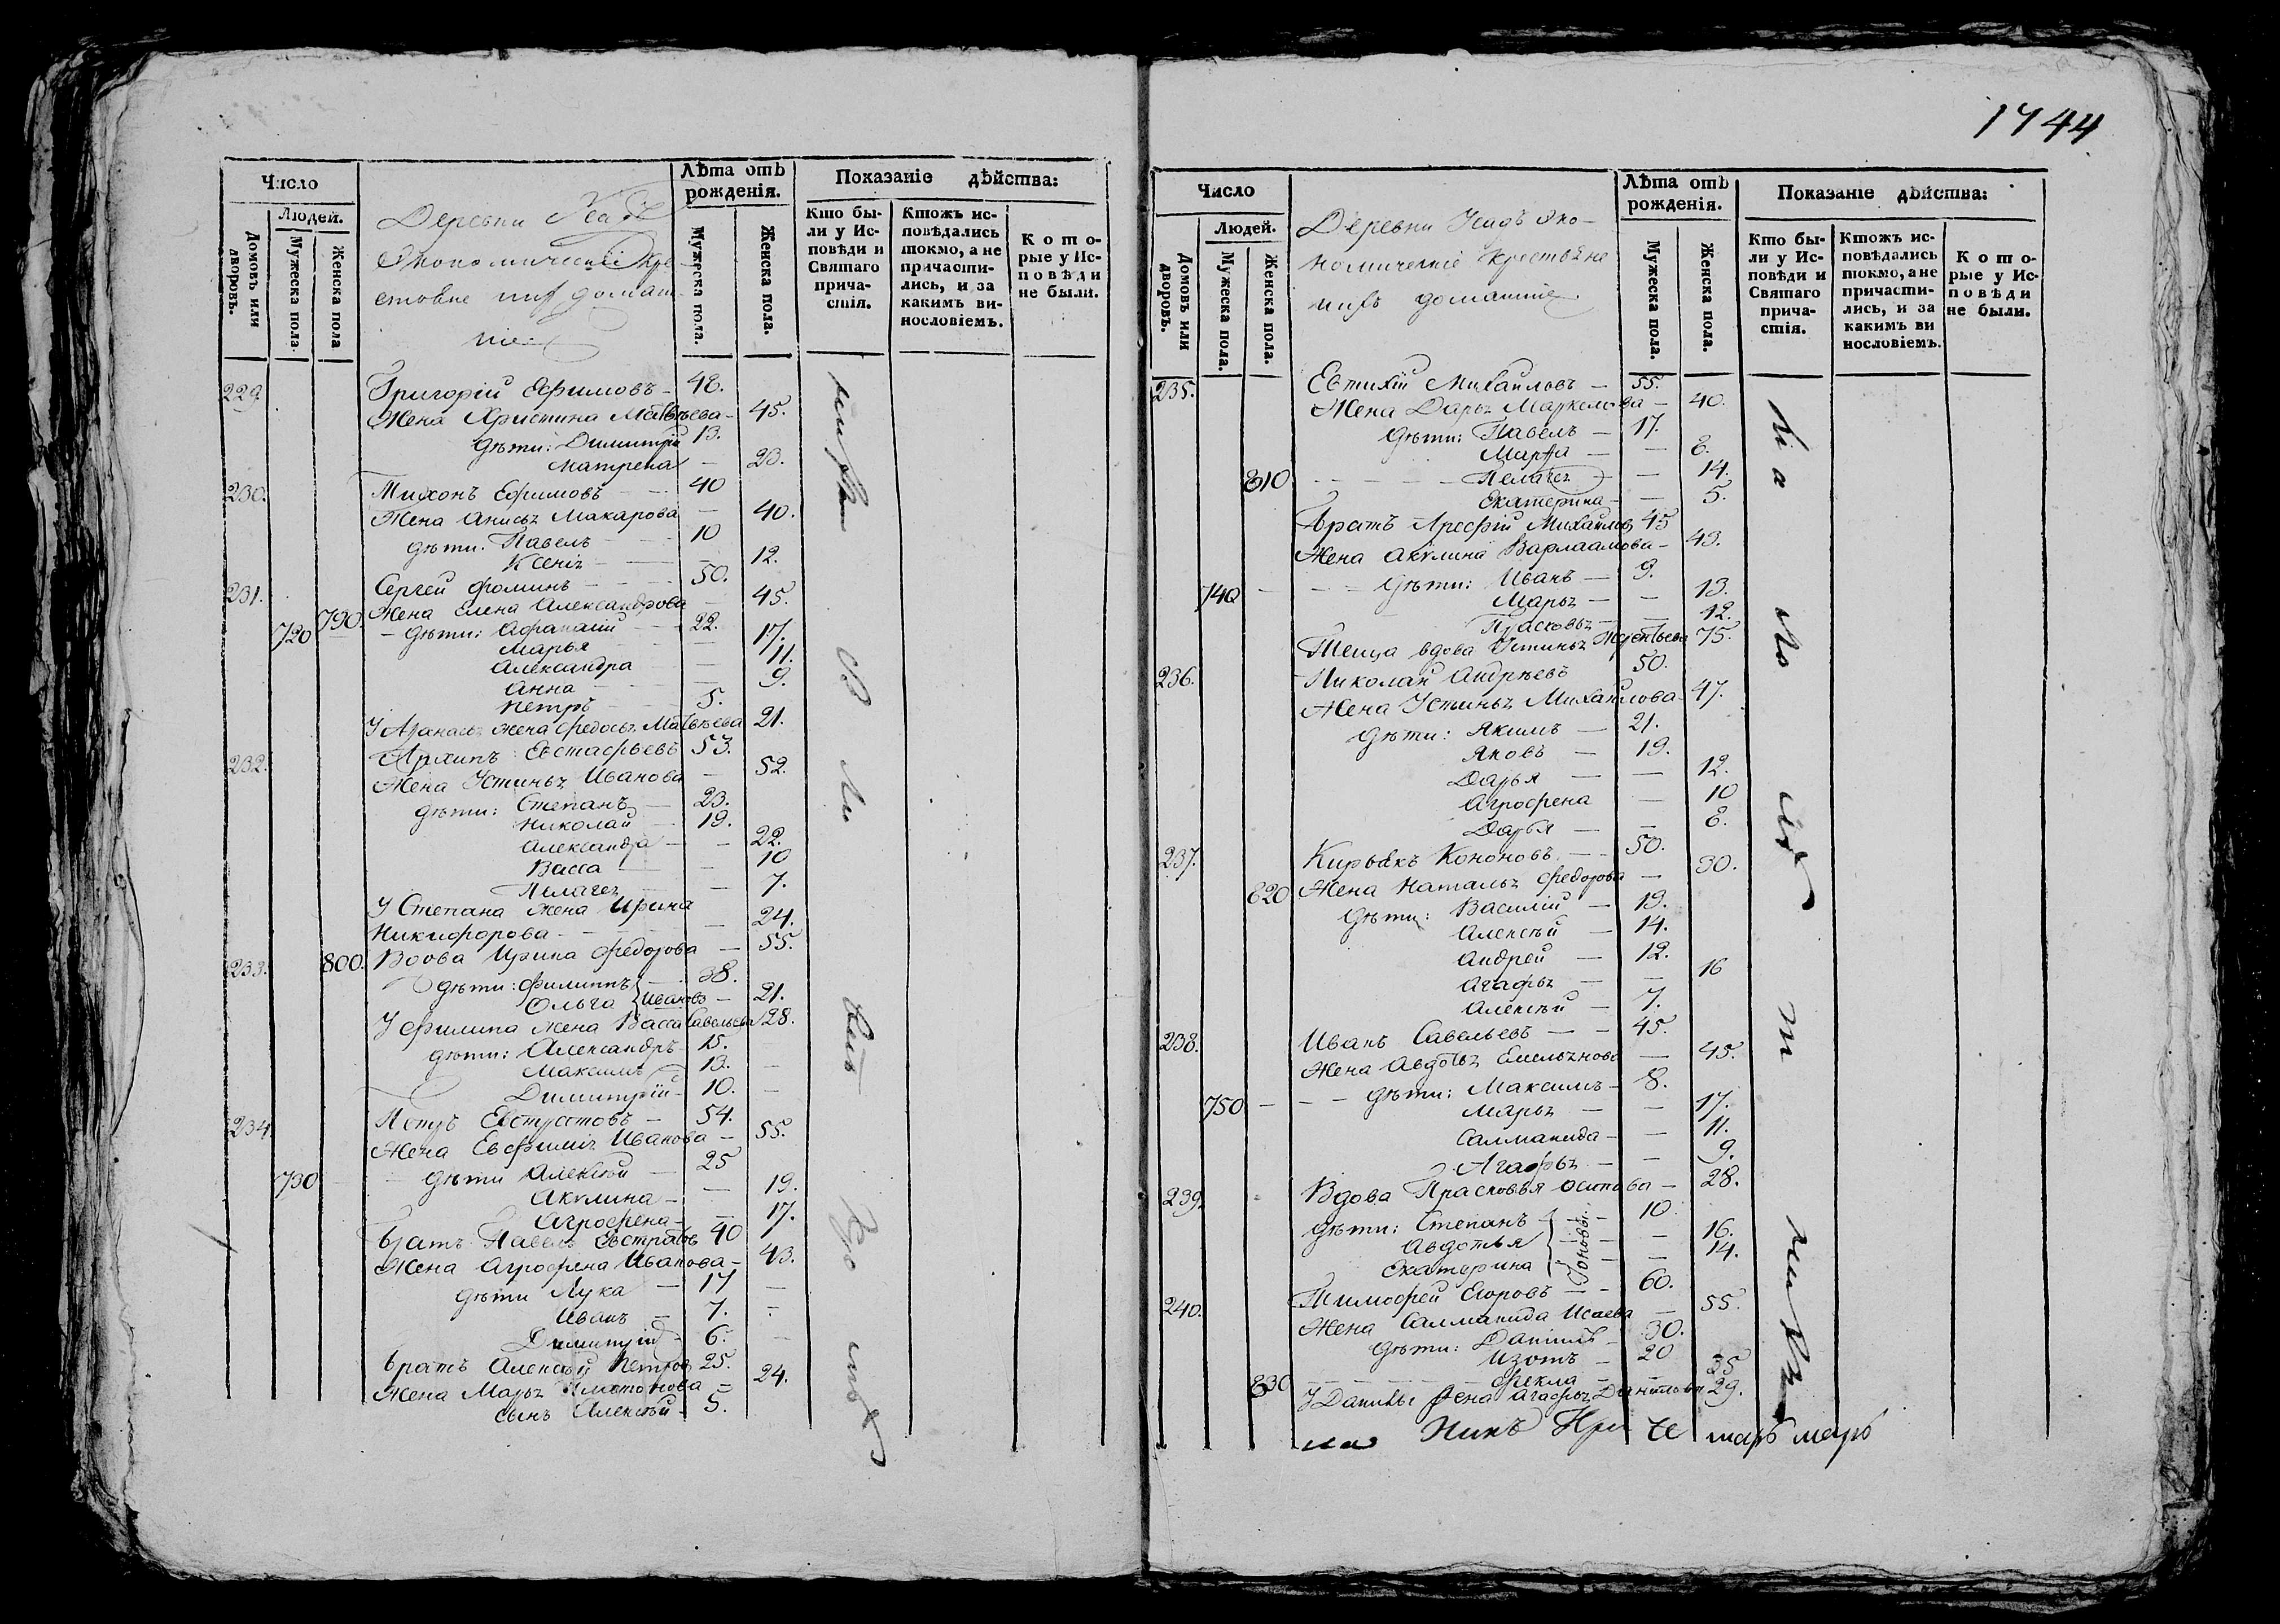 1744
Число
Людей.
Домовъ или дворовъ.
Мужеска пола.
Женска пола
Деревни Усадъ
Экономическіе Кре-
стьяне ихъ домаш-
ніе
Лѣта отъ рожденія.
Мужеска пола.
Женска пола.
Показаніе дѣйства:
Кто бы-
ли у Ис-
повѣди и
Святаго
прича-
стія.
Ктожъ ис-
повѣдались
токмо, а не
причасти-
лись, и за
какимъ ви-
нословіемъ.
Кото-
рые у Ис-
повѣди
не были.
229. Григорій Ефимовъ - 48.
Жена Христина Матвѣева - 45.
дѣти: Димитрій 13.
Матрена - 23.
230. Тихонъ Ефимовъ - 40
Жена Анисья Макарова - 40.
дѣти: Павелъ - 10
Ксенія - 12.
231. Сергей Фоминъ - 50.
790. Жена Елена Александрова - 45.
720 - дѣти: Афанасій - 22.
Марья - 17.
Александра - 11.
Анна - 9.
Петръ - 5.
У Афанасья жена Федосья Матвѣева 21.
232. Архипъ Евстафьевъ 53.
Жена Устинья Иванова - 52.
дѣти: Степанъ - 23.
Николай - 19.
Александра - 22.
Васса - 10
Пелагея - 7.
У Степана жена Ирина
Никифорова - 24.
233. 800. Вдова Ирина Федорова - 55.
дѣти: Филиппъ - 38.
Ольга Ивановы - 21.
У Филипа жена Васса Савельева 28.
дѣти: Александръ 15.
Максимъ 13. -
Димитрій - 10. -
234. Петръ Евстратовъ - 54.
Жена Евфимія Иванова - 55.
730 - дѣти Алексѣй - 25
Акулина - 19.
Агрофена - 17.
Братъ Павелъ Евстратовъ 40
Жена Агрофена Иванова - 43.
дѣти Лука - 17 -
Иванъ - 7. -
Димитрій - 6. -
Братъ Алексѣй Петровъ 25.
Жена Марья - 24.
сынъ Алексѣй - 5.
Число
Людей.
Домовъ или дворовъ.
Мужеска пола.
Женска пола.
Деревни Усадъ Эко-
номическіе Крестьяне
ихъ домашніе
Лѣта отъ рожденія.
Мужеска пола.
Женска пола.
Показаніе дѣйства:
Кто бы-
ли у Ис-
повѣди и
Святаго
прича-
стія.
Ктожъ ис-
повѣдались
токмо, а не
причасти-
лись, и за
какимъ ви
нословіемъ.
Кото-
рые у Ис-
повѣди
не были.
235. Евтихій Михайловъ - 55.
Жена Дарья Маркелова - 40.
дѣти: Павелъ - 17.
Марфа - 8.
810 - Пелагея - 14.
Екатерина - 5.
Братъ Арефій Михайловъ 45
Жена Акулина Варлаамова - 43.
дѣти: Иванъ - 9.
740 - Марья - 13.
Прасковья - 12.
Теща вдова Устинья Терентьева 75.
236. Николай Андрѣевъ 50.
Жена Устинья Михайлова - 47.
дѣти: Якимъ - 21.
Яковъ - 19.
Дарья - 12.
Агрофена - 10
Дарья - 8.
237. Кирьякъ Кононовъ - 50.
820 Жена Наталья Федорова - 30.
дѣти: Василій - 19.
Алексѣй - 14.
Андрей - 12.
Агафья - 16
Алексѣй - 7.
238. Иванъ Савельевъ - 45.
Жена Авдотья Емельянова - 45.
дѣти: Максимъ - 8.
750 - Марья - 17.
Саламанида - 11.
Агафья - 9.
239. Вдова Прасковья Осипова - 28.
дѣти: Степанъ - 10
Авдотья - 16.
Екатерина - 14.
240. Тимофей Егоровъ - 60.
Жена Саламанида Исаева - 55.
дѣти: Данилъ - 30.
Изотъ - 20
830 Фекла - 35
У Данилы жена Агафья Данилова 29.